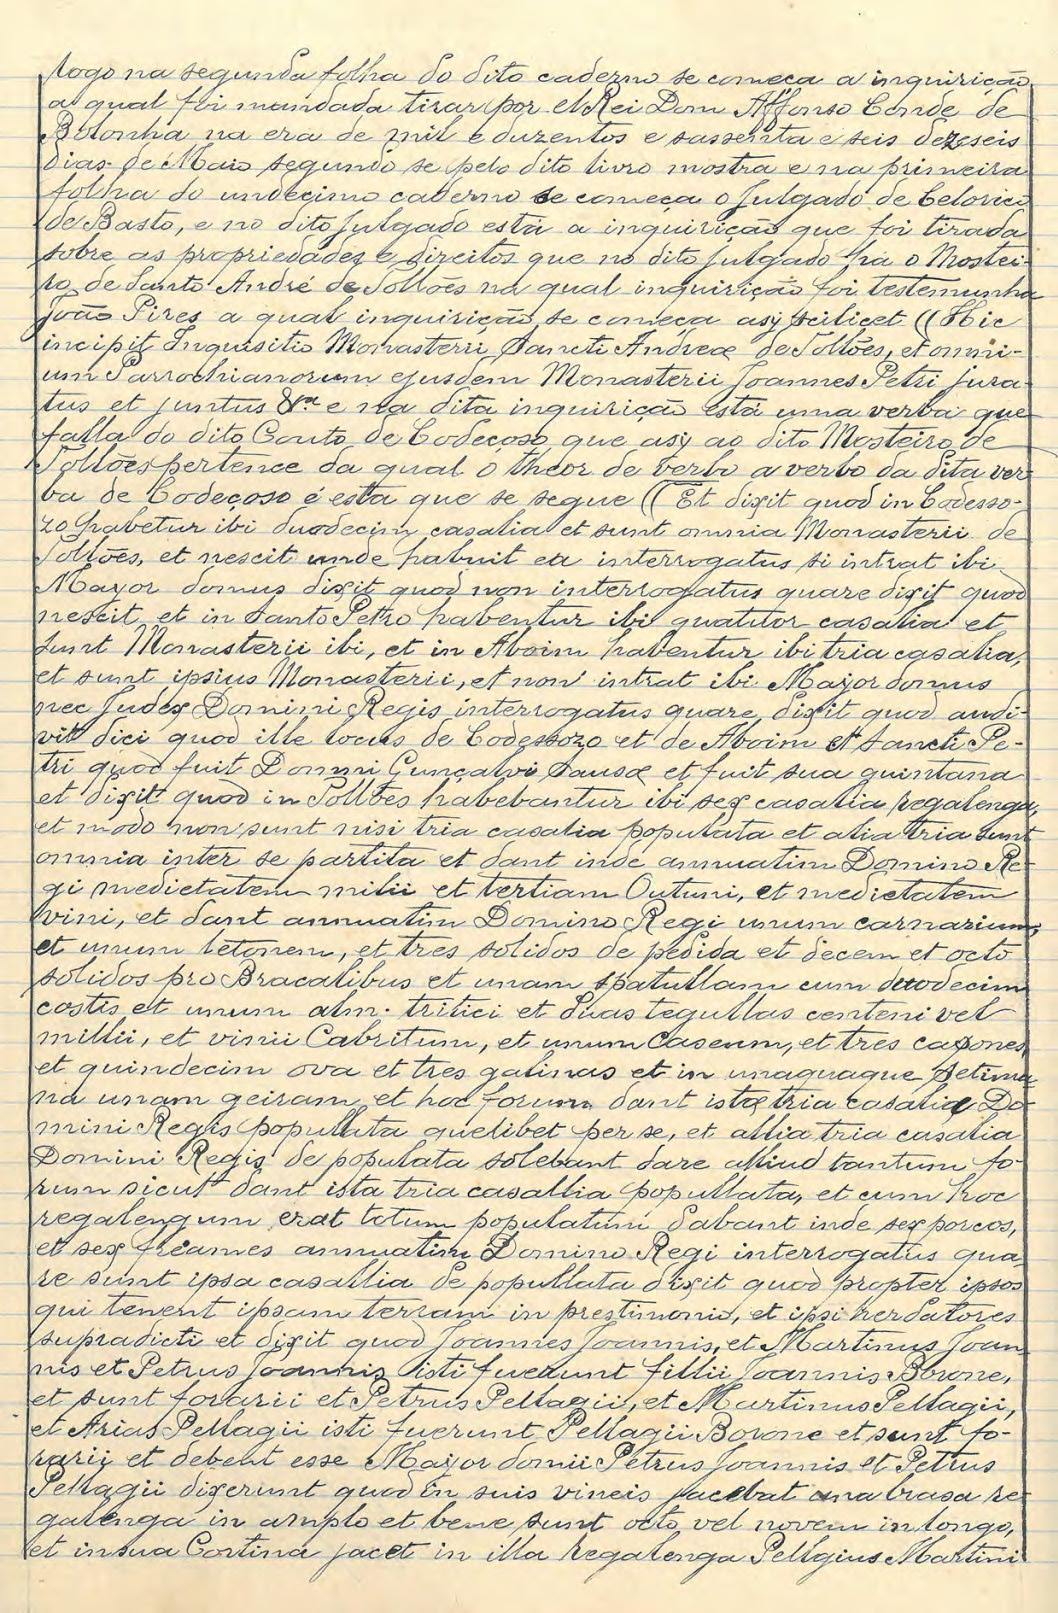 logo na segunda folha do dito caderno se começa a inquirição
a qual foi mandada tirar por el Rei Dom Affonso Conde de
Bolonha na era de mil e duzentos e sassenta e seis dezeseis
dias de Maio segundo se pelo dito livro mostra e na primeira
folha do undecimo caderno se começa o Julgado de Celorico
de Basto, e no dito Julgado está a inquirição que foi tirada
sobre as propriedades e direitos que no dito Julgado ha o Mostei-
ro de Santo André de Tollões na qual inquirição foi testemunha
João Pires a qual inquirição se começa asy scilicet ((Hic
incipit Inquisitio Monasterii Sancti Andreæ de Tollões, et omni-
um Parrochianorum ejusdem Monasterii Joannes Petri jura
tus et juntus &ra e na dita inquirição está uma verba que
falla do dito Couto de Codeçoso que asy ao dito Mosteiro de
Tollões pertence da qual o theor de verbo a verbo da dita ver
ba de Codeçoso é esta que se segue ((Et dixit quod in Codesso-
zo habetur ibi duodecim casalia et sunt omnia Monasterii de
Tollões, et nescit unde habuit ea interrogatus si intrat ibi
Mayor domus dixit quod non interrogatus quare dixit quod
nescit et in Santo Petro habentur ibi quatitor casalia et
sunt Monasterii ibi, et in Aboim habentur ibi tria casalia,
et sunt ipsius Monasterii, et non intrat ibi Mayor domus
nec Judex Domini Regis interrogatus quare dixit quod audi-
vit dici quod ille locus de Codessozo et de Aboim et Sancti Pe-
tri quod fuit Domni Gunçalvi Sausæ et fuit sua quintana
et dixit quod in Tollões habebantur ibi sex casalia regalenga,
et modo non sunt nisi tria casalia populata et alia tria sunt
omnia inter se partita et dant inde annuatim Domino Re-
gi medietatem milii et tertiam Outuni, et medietatem
vini, et dant annuatim Domino Regi unum carnarium,
et unum letonem, et tres solidos de pedida et decem et octo
solidos pro Bracalibus et unam spatullam cum duodecim
costis et unum alm. tritici et duas tegullas centeni vel
millii, et vinii Cabritum, et unum Caseum, et tres capones,
et quindecim ova et tres galinas et in unaquaque Setima
na unam geiram et hoc forum dant istæ tria casaliæ Do
mini Regis popullata quelibet per se, et allia tria casalia
Domini Regis de populata solebant dare alliud tantum fo-
rum sicut dant ista tria casallia popullata, et cum hoc
regalengum erat totum populatum dabant inde sex porcos,
et sex freames annuatim Domino Regi interrogatus qua
re sunt ipsa casallia de popullata dixit quod propter ipsos
qui tenent ipsam terram in prestimonio, et ipsi herdatores
supradicti et dixit quod Joannes Joannis, et Martinus Joan
nis et Petrus Joannis isti fuerunt fillii Joannis Bovone,
et sunt forarii et Petrus Pellagii, et Martinus Pellagii,
et Arias Pellagii isti fuerunt Pellagii Bovone et sunt fo-
rarii et debent esse Mayor domii Petrus Joannis et Petrus
Pellagii dixerunt quod in suis vineis jacebat una brasa re
galenga in amplo et bene sunt octo vel novem in longo,
et in sua Cortina jacet in illa regalenga Pellgius Martini